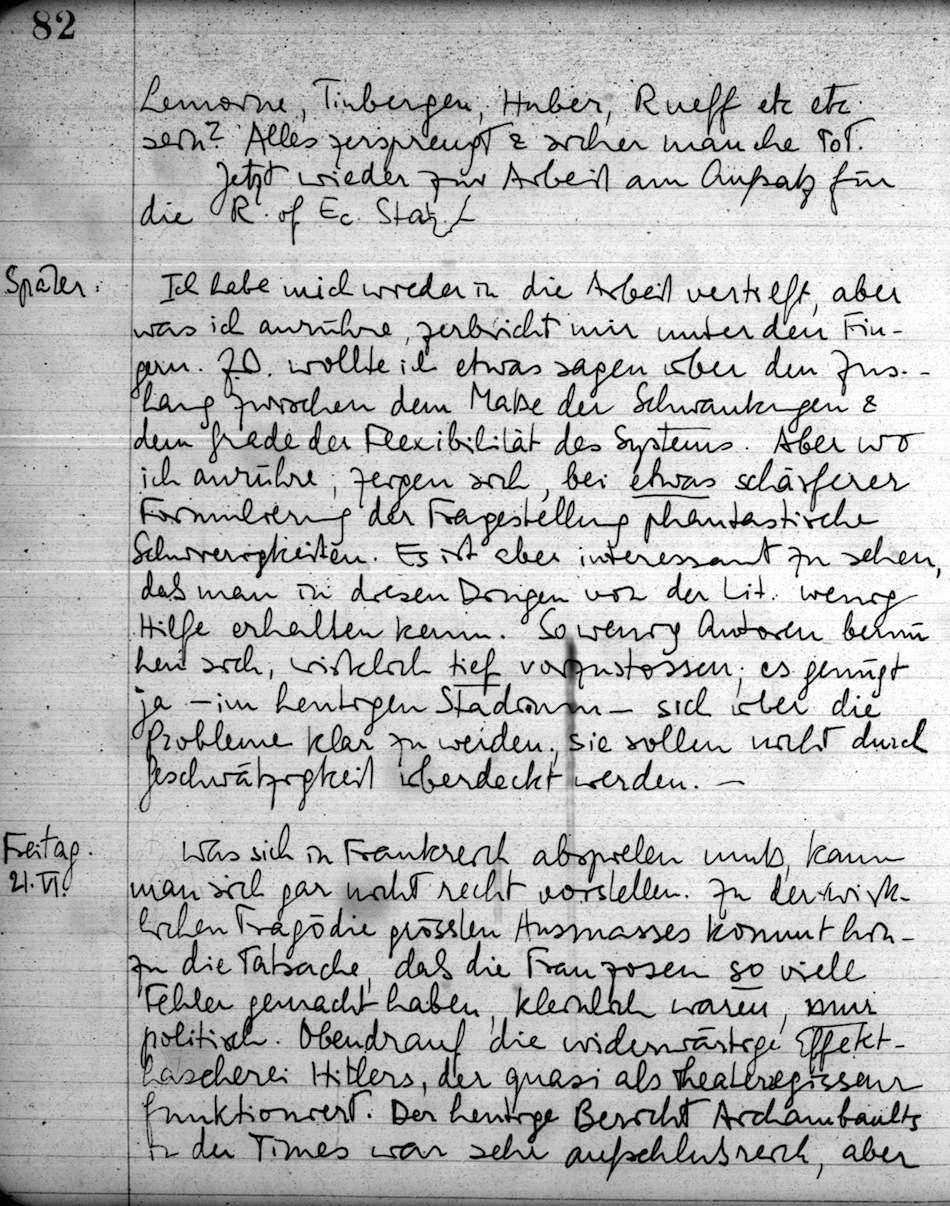 82
Lemoine, Tinbergen, Huber, Rueff etc etc.
sein? Alles zersprengt & sicher manche tot.
Jetzt wieder zur Arbeit am Aufsatz für
die R. of Ec. Stat. /
Später: Ich habe mich wieder in die Arbeit vertieft, aber
was ich anrühre, zerbricht mir unter den Fin-
gern. Z.B. wollte ich etwas sagen über den Zus.-
hang zwischen dem Maße der Schwankungen &
dem Grade der Flexibilität des Systems. Aber wo
ich anrühre, zeigen sich, bei etwas schärferer
Formulierung der Fragestellung phantastische
Schwierigkeiten. Es ist aber interessant zu sehen,
daß man in diesen Dingen von der Lit. wenig
Hilfe erhalten kann. So wenig Autoren bemü
hen sich, wirklich tief vorzustossen; es genügt
ja – im heutigen Stadium – sich über die
Probleme klar zu werden, sie sollen nicht durch
Geschwätzigkeit überdeckt werden. –
Freitag. Was sich in Frankreich abspielen muß, kann
21.VI. man sich gar nicht recht vorstellen. Zu der wirk-
lichen Tragödie grössten Ausmasses kommt hin-
zu die Tatsache, daß die Franzosen so viele
Fehler gemacht haben, kleinlich waren,
politisch. Obendrauf die widerwärtige Effekt-
hascherei Hitlers, der quasi als Theaterregisseur
funktioniert. Der heutige Bericht Archambaults
in den Times war sehr aufschlußreich, aber